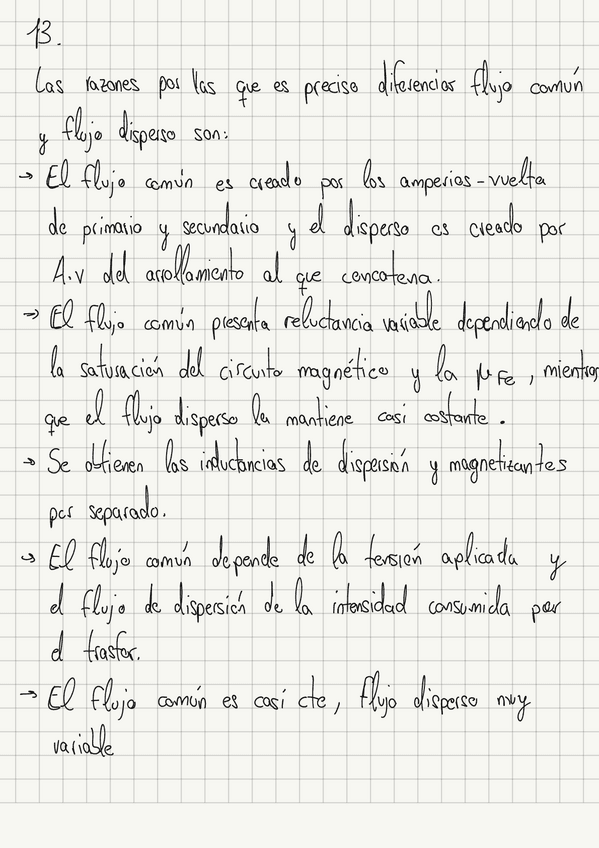 13.
Las razones por las que es preciso diferenciar flujo común
y flujo disperso son:
→ El flujo común es creado por los amperios-vuelta
de primario y secundario y el disperso es creado por
A.v del arrollamiento al que concatena.
→ El flujo común presenta reluctancia variable dependiendo de
la saturación del circuito magnético y la μFe, mientras
que el flujo disperso la mantiene casi costante.
→ Se obtienen las inductancias de dispersión y magnetizantes
por separado.
→ El flujo común depende de la tensión aplicada y
el flujo de dispersión de la intensidad consumida por
el trasfor.
→ El flujo común es casí cte, flujo disperso muy
variable